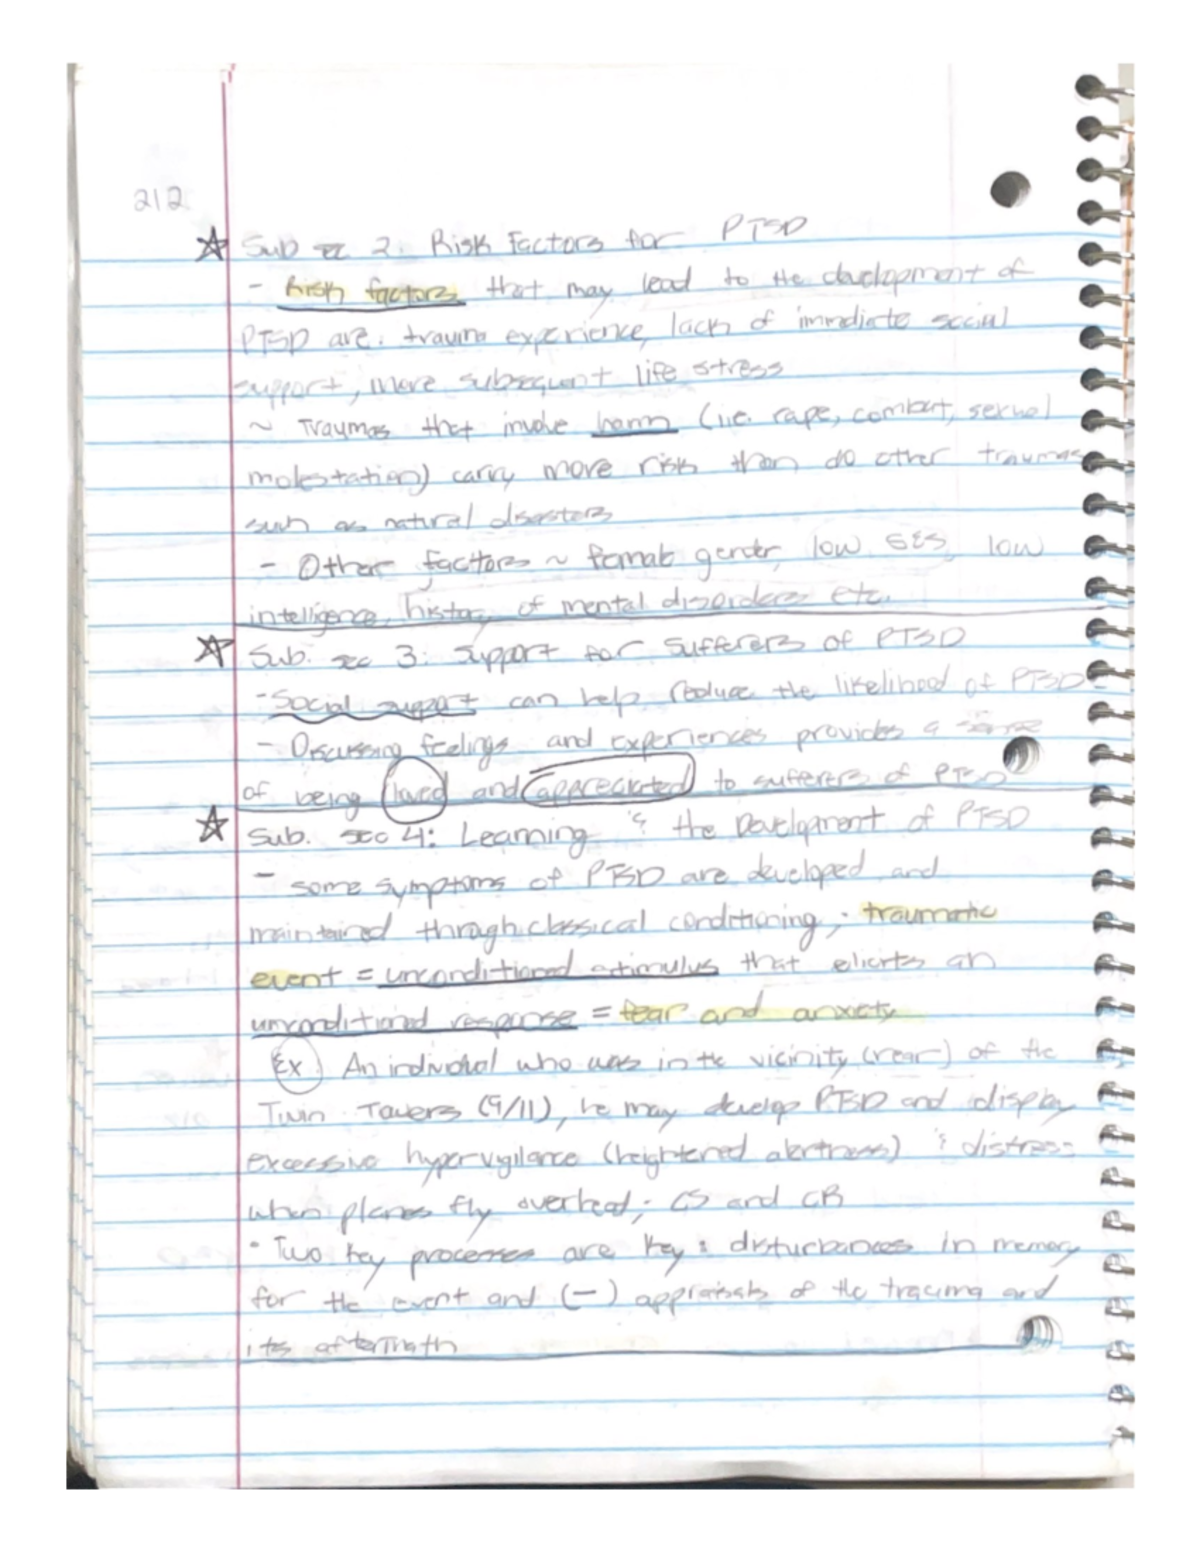 212
Sub sec 2: Risk Factors for PTSD
- Risk factors that may lead to the development of
PTSD are: trauma experience, lack of immediate social
support, more subsequent life stress
~ Traumas that involve harm (i.e. rape, combat, sexual
molestation) carry more risk than do other traumas
such as natural disasters
- Other factors ~ female gender, low SES, low
intelligence, history of mental disorders etc.
Sub. sec 3: Support for sufferers of PTSD
- Social support can help reduce the likelihood of PTSD
- Discussing feelings and experiences provides a sense
of being loved and appreciated to sufferers of PTSD
Sub. sec 4: Learning & the Development of PTSD
- some symptoms of PTSD are developed and
maintained through classical conditioning; traumatic
event = unconditioned stimulus that elicits an
unconditioned response = fear and anxiety
Ex An individual who was in the vicinity (near) of the
Twin Towers (9/11), he may develop PTSD and display
excessive hypervigilance (heightened alertness) & distress
when planes fly overhead; CS and CR
· Two key processes are key: disturbances in memory
for the event and (-) appraisals of the trauma and
its aftermath